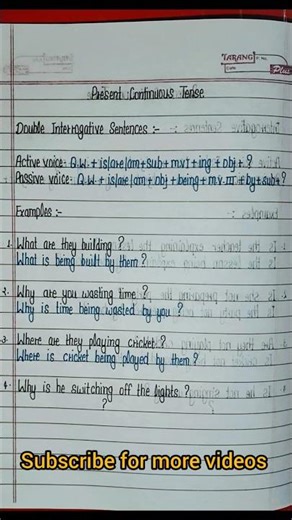 TARANG
Date
Plus
Present Continuous Tense
Double Interrogative Sentences :-
Active voice: Q.W. + is/are/am + sub + mvI + ing + obj + ?
Passive voice: Q.W. + is/are/am + obj + being + m.v.III + by + sub + ?
Examples :-
1. What are they building ?
What is being built by them ?
2. Why are you wasting time ?
Why is time being wasted by you ?
3. Where are they playing cricket ?
Where is cricket being played by them ?
4. Why is he switching off the lights ?
?
Subscribe for more videos